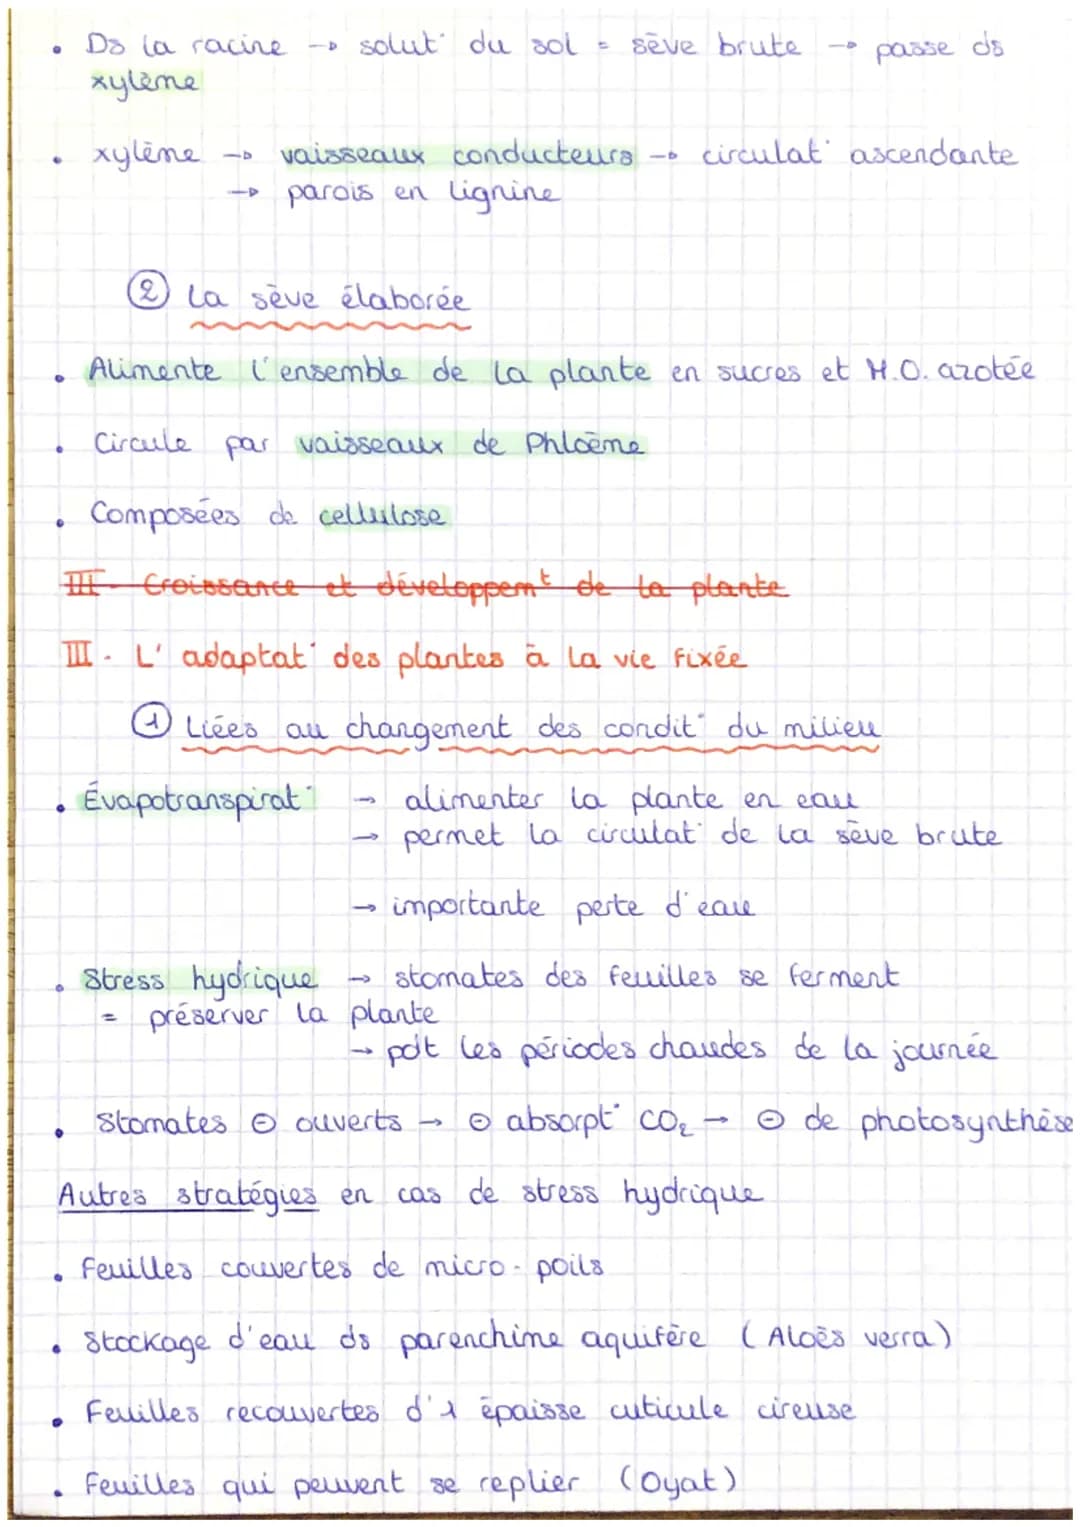 • Ds la racine → solut° du sol = sève brute → passe ds
xylème
• xylème → vaisseaux conducteurs → circulat° ascendante
→ parois en lignine
② La sève élaborée
• Alimente l'ensemble de la plante en sucres et M.O. azotée
• Circule par vaisseaux de Phloème
• Composées de cellulose
III - Croissance et développemt de la plante
III - L'adaptat° des plantes à la vie fixée
① Liées au changement des condit° du milieu
• Évapotranspirat° → alimenter la plante en eau
→ permet la circulat° de la sève brute
→ importante perte d'eau
• Stress hydrique → stomates des feuilles se ferment
= préserver la plante
→ pdt les périodes chaudes de la journée
• Stomates ⊖ ouverts → ⊖ absorpt° CO₂ → ⊖ de photosynthèse
Autres stratégies en cas de stress hydrique
• Feuilles couvertes de micro-poils
• Stockage d'eau ds parenchime aquifère (Aloès verra)
• Feuilles recouvertes d'1 épaisse cuticule cireuse
• Feuilles qui peuvent se replier (Oyat)